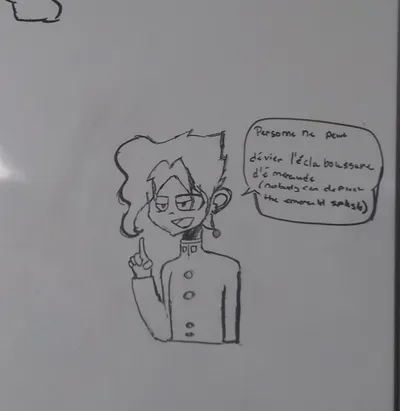 Personne ne peut
dévier l'éclaboussure
d'émeraude
(nobody can deflect
the emerald splash)